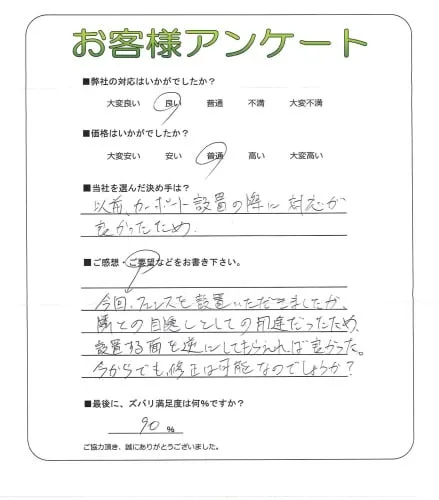 お客様アンケート
■弊社の対応はいかがでしたか?
大変良い 良い 普通 不満 大変不満
■価格はいかがでしたか?
大変安い 安い 普通 高い 大変高い
■当社を選んだ決め手は?
以前、カーポート設置の際に対応が
良かったため.
■ご感想・ご要望などをお書き下さい。
今回、フェンスを設置いただきましたが、
隣との目隠しとしての用途だったため、
設置する面を逆にしてもらえれば良かった。
今からでも、修正は可能なのでしょうか?
■最後に、ズバリ満足度は何%ですか?
90 %
ご協力頂き、誠にありがとうございました。